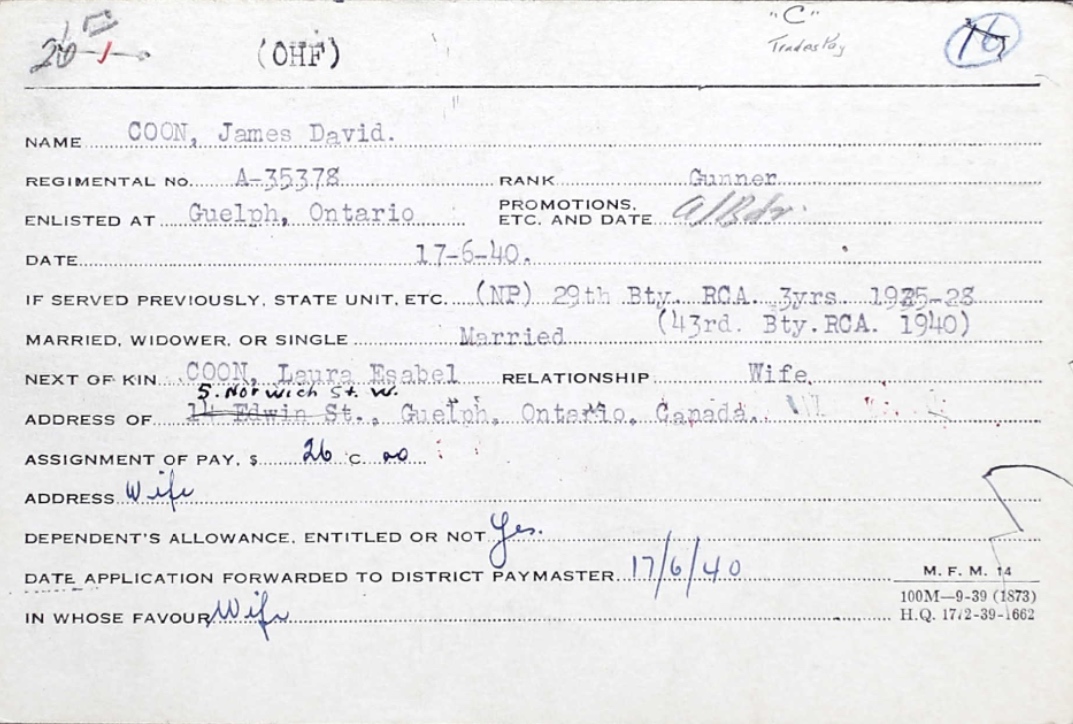 "C"
(OHF) Trades Pay 16
NAME COON, James David.
REGIMENTAL NO. A-35378 RANK Gunner
ENLISTED AT Guelph, Ontario PROMOTIONS, ETC. AND DATE A/Bdr.
DATE 17-6-40.
IF SERVED PREVIOUSLY, STATE UNIT, ETC. (NP) 29th Bty. RCA. 3yrs. 1925-28
(43rd. Bty.RCA. 1940)
MARRIED, WIDOWER, OR SINGLE Married
NEXT OF KIN COON, Laura Esabel RELATIONSHIP Wife.
5. Norwich St. W.
ADDRESS OF 14 Edwin St., Guelph, Ontario, Canada.
ASSIGNMENT OF PAY, $ 26 C 00
ADDRESS Wife
DEPENDENT'S ALLOWANCE, ENTITLED OR NOT Yes.
DATE APPLICATION FORWARDED TO DISTRICT PAYMASTER 17/6/40
IN WHOSE FAVOUR Wife
M. F. M. 14
100M—9-39 (1873)
H.Q. 1772-39-1662